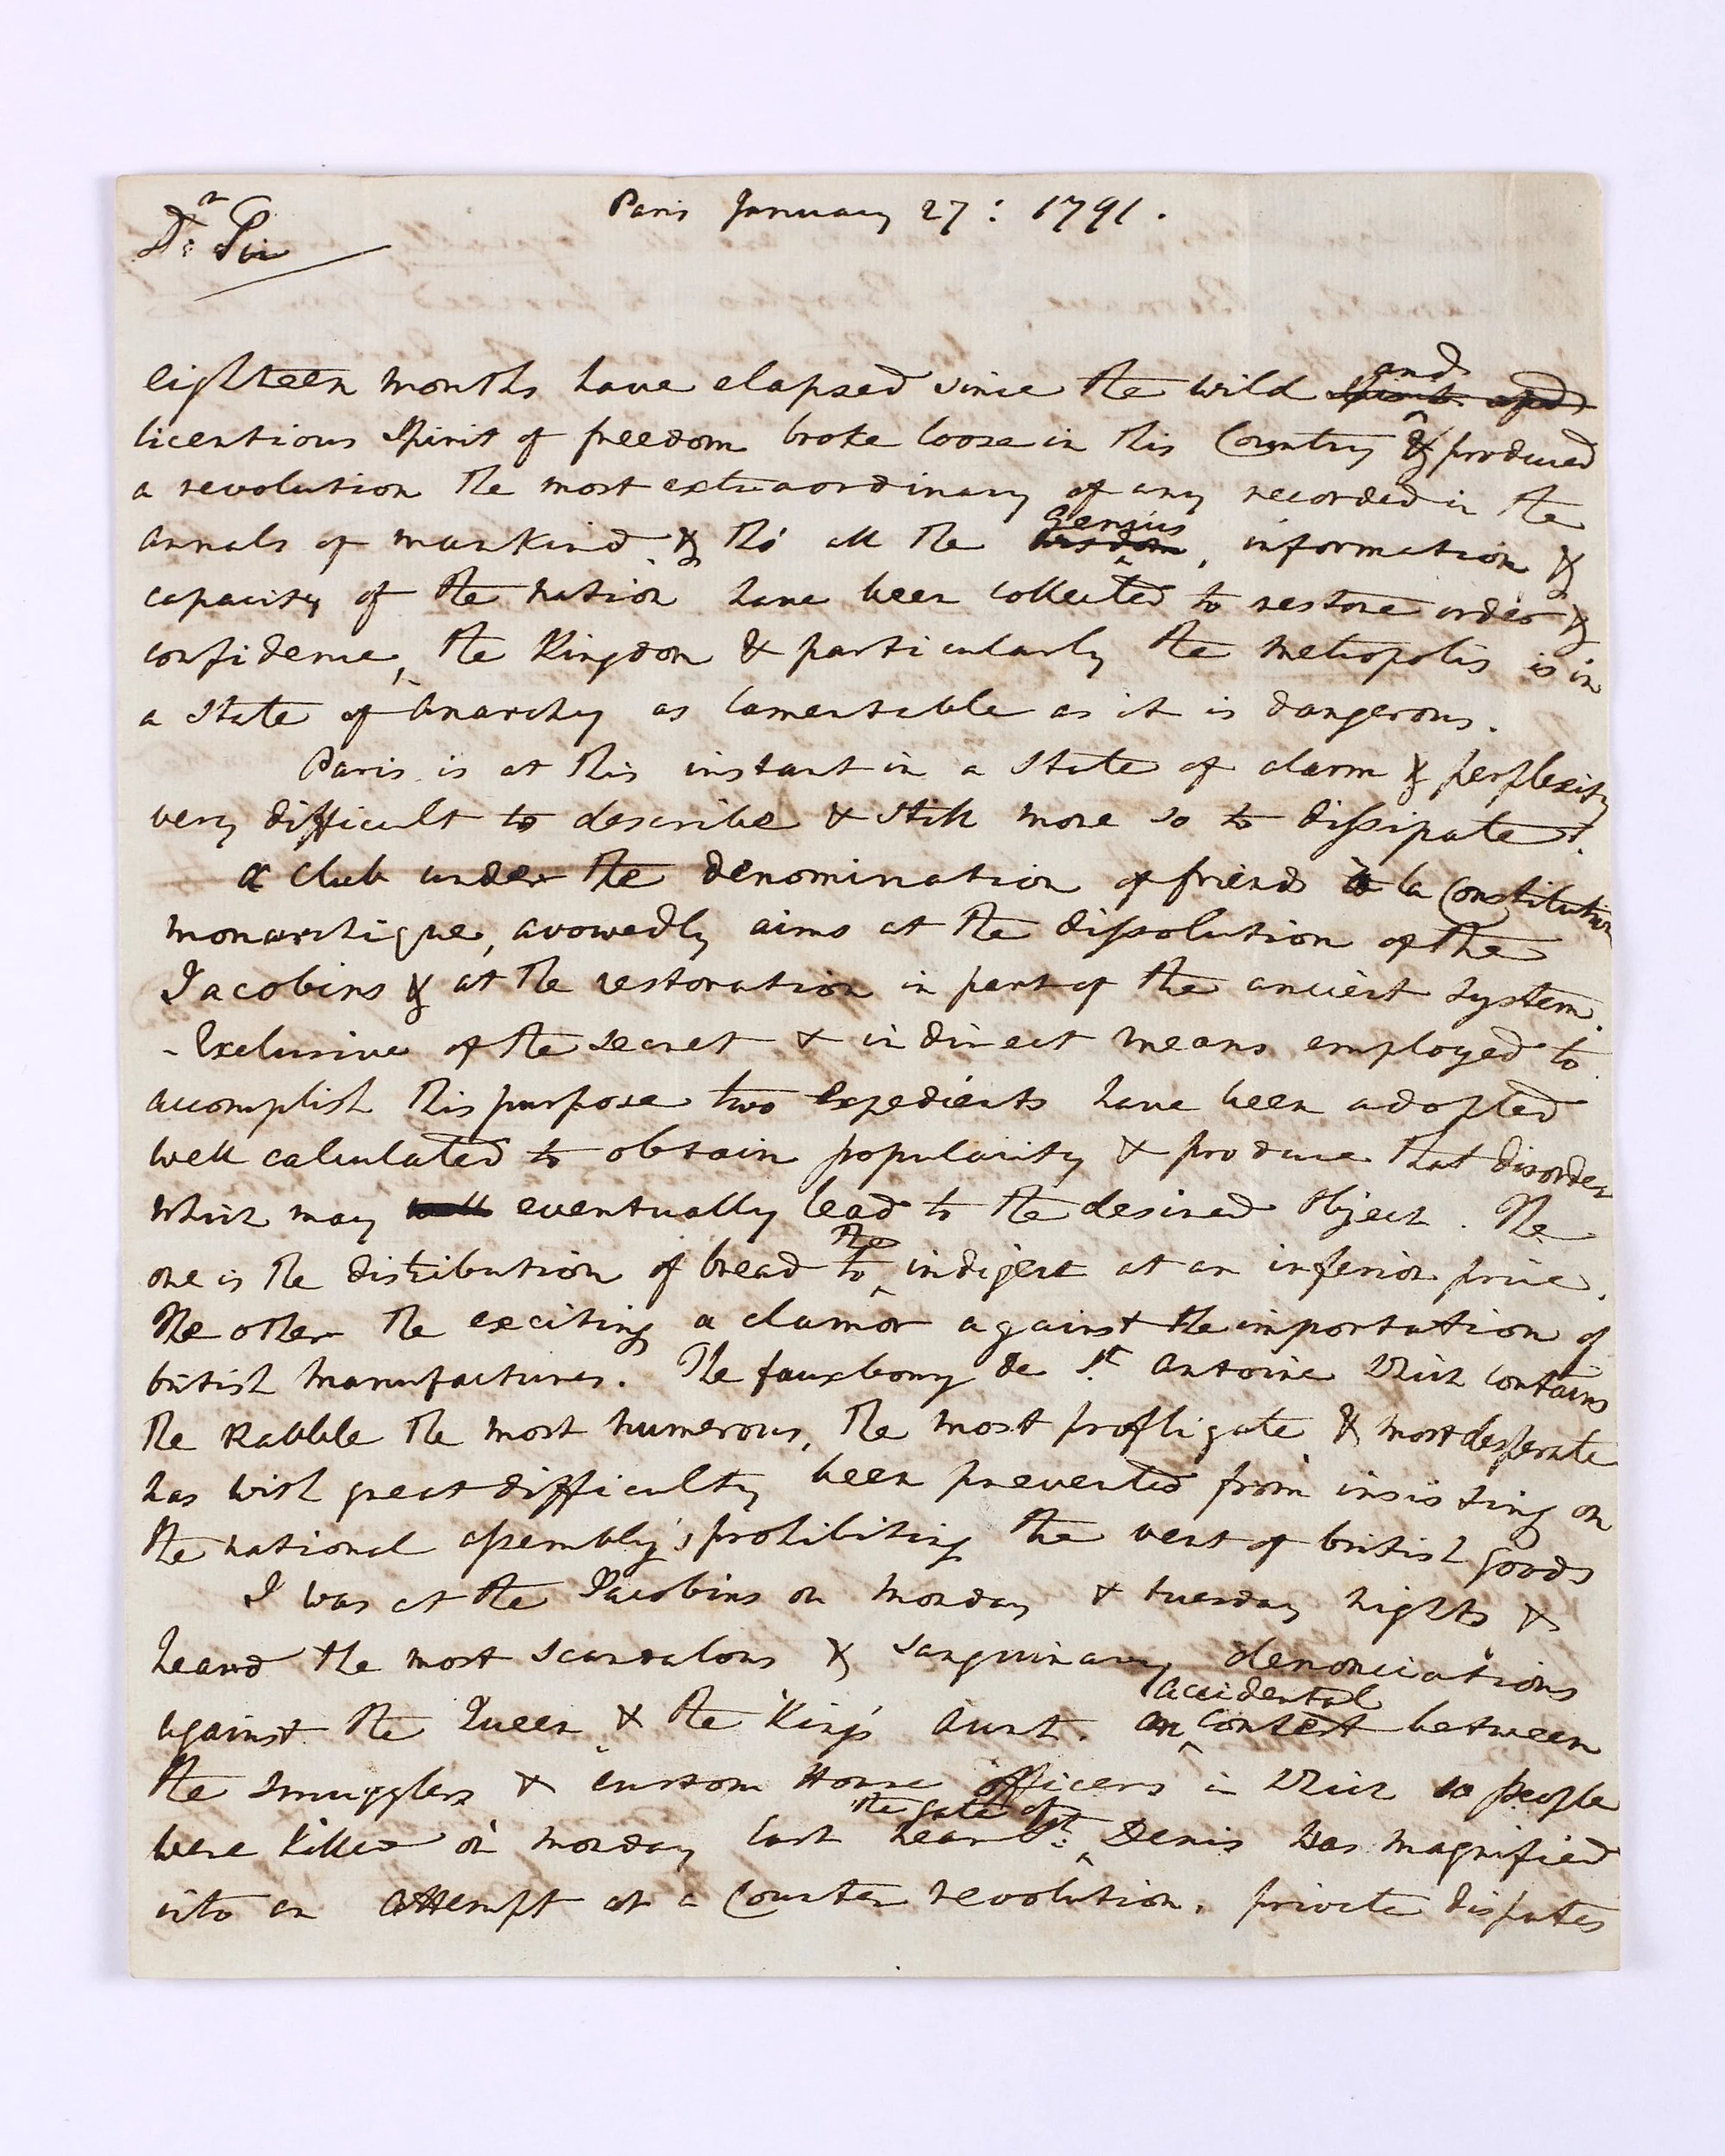 Paris January 27: 1791.
Dr Sir
eighteen months have elapsed since the wild and
licentious Spirit of freedom broke loose in this Country & produced
a revolution the most extraordinary of any recorded in the
annals of mankind. & tho' all the genius, information &
capacity of the nation have been collected to restore order &
confidence, the Kingdom & particularly the metropolis is in
a State of Anarchy as lamentable as it is dangerous.
Paris is at this instant in a State of alarm & perplexity
very difficult to describe & still more so to dissipate.
a club under the denomination of friends to la Constitution
monarchique, avowedly aims at the dissolution of the
Jacobins & at the restoration in part of the ancient system.
- Exclusive of the secret & indirect means employed to
accomplish this purpose two expedients have been adopted
well calculated to obtain popularity & produce that disorder
which may eventually lead to the desired object. The
one is the distribution of bread to the indigent at an inferior price.
The other the exciting a clamor against the importation of
british manufactures. The fauxbourg de St. Antoine which contains
the Rabble the most numerous, the most profligate & most desperate
has with great difficulty been prevented from insisting on
the national assembly's prohibiting the vent of british goods
I was at the Jacobins on monday & tuesday nights &
heard the most scandalous & sanguinary denonciations
against the Queen & the King's Aunt. an accidental contest between
the smugglers & custom House officers in which 10 people
were killed on monday last near the gate of St. Denis was magnified
into an attempt at a Counter revolution. private disputes